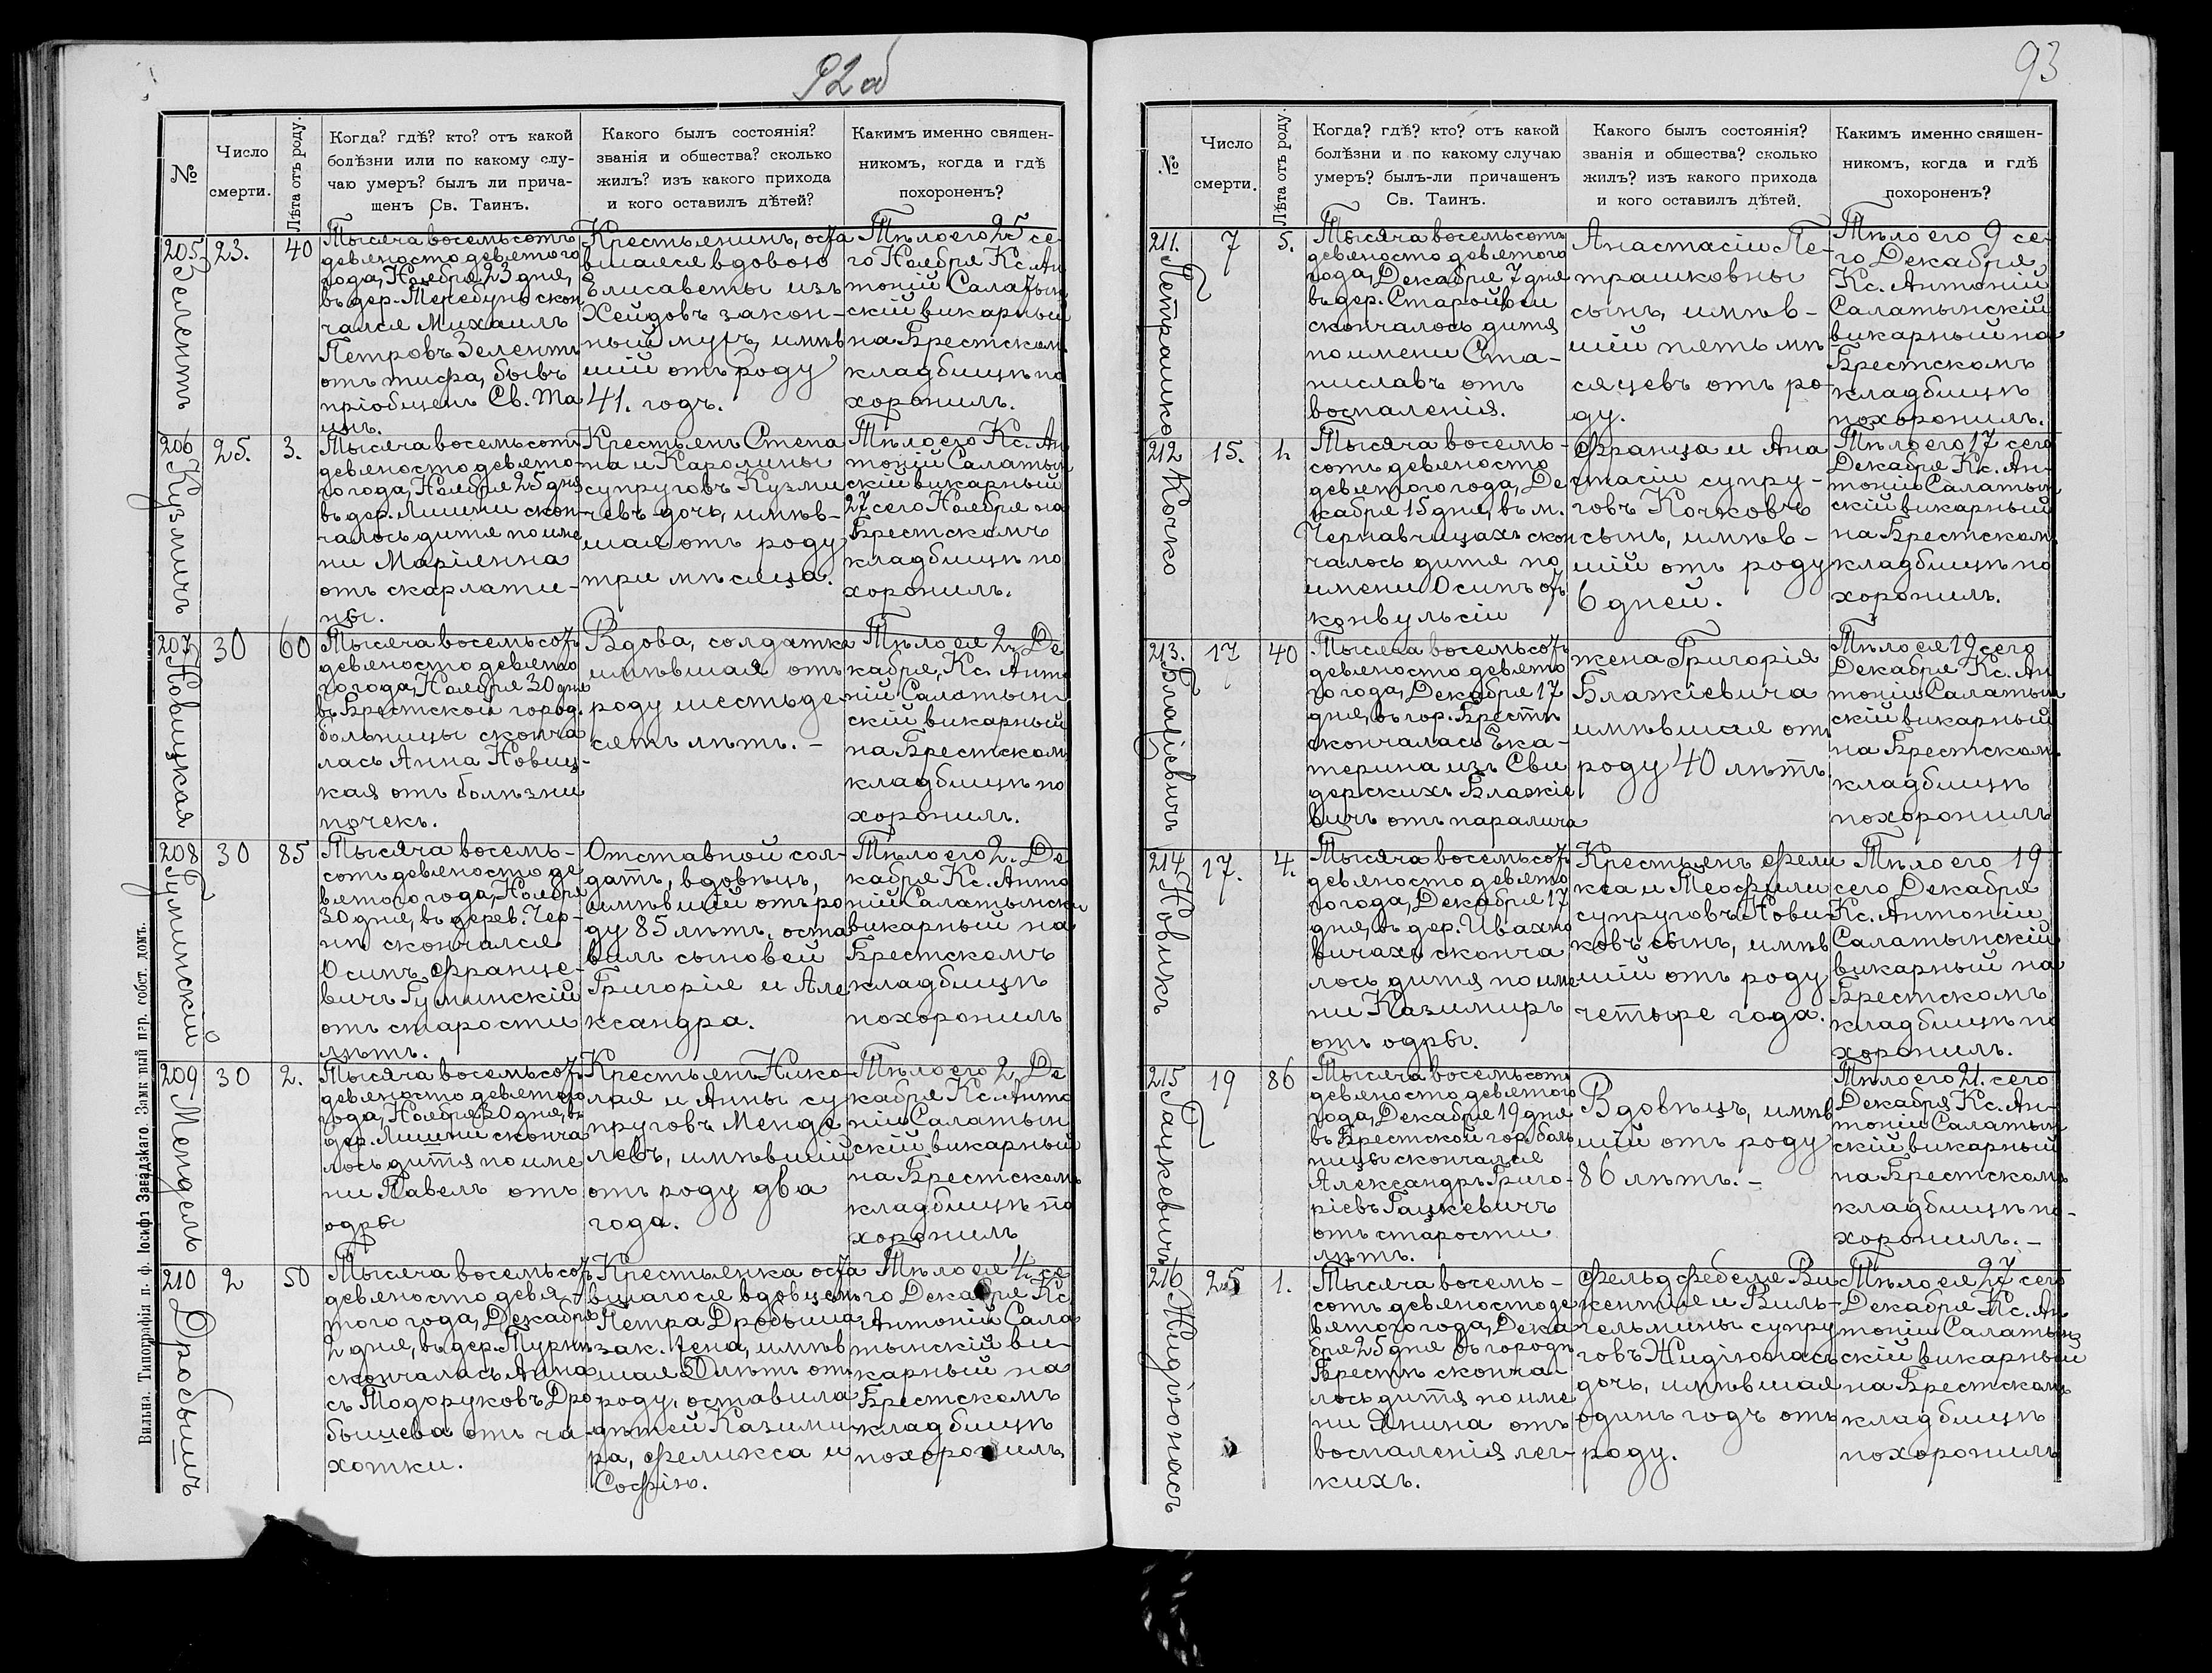 92об
№
Число
смерти.
Лѣта отъ роду.
Когда? гдѣ? кто? отъ какой
болѣзни или по какому слу-
чаю умеръ? былъ ли прича-
щенъ Св. Таинъ.
Какого былъ состоянія?
званія и общества? сколько
жилъ? изъ какого прихода
и кого оставилъ дѣтей?
Какимъ именно священ-
никомъ, когда и гдѣ
похороненъ?
205
Зелентъ
23.
40
Тысяча восемьсотъ
девяносто девятого
года, Ноября 23 дня,
въ дер. Тередунь скон
чался Михаилъ
Петровъ Зелентъ
отъ тифа, бывъ
пріобщенъ Св. Та
инъ.
Крестьянинъ, оста
вшаяся вдовою
Елисаветы изъ
Хейдовъ закон-
ный мужъ, имѣв
шій отъ роду
41. годъ.
Тѣло его 25 се-
го Ноября Кс. Ан
тоній Салатын
скій викарный
на Брестском
кладбищѣ по
хоронилъ.
206
Кузмичъ
25.
3.
Тысяча восемьсотъ
девяносто девято-
го года, Ноября 25 дня
въ дер. Лищи скон
чалось дитя по име
ни Маріянна
отъ скарлати-
ны.
Крестьянъ Степа
на и Каролины
супруговъ Кузми
чевъ дочь, имѣв-
шая отъ роду
три мѣсяца.
Тѣло его Кс. Ан
тоній Салатын
скій викарный
27 сего Ноября на
Брестскомъ
кладбищѣ по
хоронилъ.
207
Новицкая
30
60
Тысяча восемьсотъ
девяносто девято
го года, Ноября 30 дня
въ Брестской город.
больницы сконча
лась Анна Новиц-
кая отъ болѣзни
почекъ.
Вдова, солдатка
имѣвшая отъ
роду шестьде-
сятъ лѣтъ. -
Тѣло ея 2 Де
кабря, Кс. Анто
ній Салатын
скій викарный
на Брестском
кладбищѣ по
хоронилъ.
208
Гуминскій
30
85
Тысяча восемь-
сотъ девяносто де
вятого года, Ноября
30 дня, въ дерев. Чер-
ни скончался
Осипъ Францe-
вичъ Гуминскій
отъ старости
лѣтъ.
Отставной сол-
датъ, вдовецъ,
имѣвшій отъ ро
ду 85 лѣтъ, оста
вилъ сыновей
Григорія и Але
ксандра.
Тѣло его 2. Де
кабря Кс. Анто
ній Салатынскій
викарный на
Брестскомъ
кладбищѣ
похоронилъ
209
Мендель
30
2.
Тысяча восемьсотъ
девяносто девятого
года, Ноября 30 дня, въ
дер. Лищи сконча
лось дитя по име
ни Павелъ отъ
одры
Крестьянъ Нико-
лая и Анны су
пруговъ Менде
левъ, имѣвшій
отъ роду два
года.
Тѣло его 2 Де
кабря Кс. Анто
ній Салатын
скій викарный
на Брестскомъ
кладбищѣ по
хоронилъ
210
Дробышъ
2
50
Тысяча восемьсотъ
девяносто девя-
того года, Декабря
2 дня, въ дер. Турны
скончалась Анна
съ Тодоруковъ Дро
бышева отъ ча-
хотки.
Крестьянка оста
вшагося вдовцемъ
Петра Дробыша
зак. жена, имѣв
шая 50 лѣтъ отъ
роду, оставила
дѣтей Казими-
ра, Феликса и
Софію.
Тѣло ея 4. се
го Декабря Кс.
Антоній Сала
тынскій ви-
карный на
Брестскомъ
кладбищѣ
похоронилъ
Вильна. Типографія п. ф. Іосифъ Завадзкаго. Замковый пер. собст. домъ.
93
№
Число
смерти.
Лѣта отъ роду.
Когда? гдѣ? кто? отъ какой
болѣзни и по какому случаю
умеръ? былъ-ли причащенъ
Св. Таинъ.
Какого былъ состоянія?
званія и общества? сколько
жилъ? изъ какого прихода
и кого оставилъ дѣтей.
Какимъ именно священ-
никомъ, когда и гдѣ
похороненъ?
211.
Петрашко
7
5.
Тысяча восемьсотъ
девяносто девятого
года, Декабря 7 дня
въ дер.
скончалось дитя
по имени Ста-
ниславъ отъ
воспаленія.
Анастасіи Пе-
трашковны
сынъ, имѣв-
шій пять мѣ
сяцевъ отъ ро-
ду.
Тѣло его 9 се-
го Декабря,
Кс. Антоній
Салатынскій
викарный на
Брестскомъ
кладбищѣ
похоронилъ.
212
Кочко
15.
1.
Тысяча восемь-
сотъ девяносто
девятого года, Де
кабря 15 дня, въ м.
Чернавчицахъ скон
чалось дитя по
имени Осипъ отъ
конвульсіи
Франца и Ана
стасіи супру-
говъ Кочковъ
сынъ, имѣв-
шій отъ роду
6 дней.
Тѣло его 17 сего
Декабря Кс. Ан-
тоній Салатын
скій викарный
на Брестском
кладбищѣ по
хоронилъ.
213.
Блажіевичъ
17
40
Тысяча восемьсотъ
девяносто девято
го года, Декабря 17
дня, въ гор. Брестѣ
скончалась Ека-
терина изъ Сви
дерскихъ Блажіе
вичъ отъ паралича
жена Григорія
Блажіевича
имѣвшая отъ
роду 40 лѣтъ.
Тѣло ея 19 сего
Декабря Кс. Ан
тоній Салатын
скій викарный
на Брестском
кладбищѣ
похоронилъ
214
Новикъ
17.
4.
Тысяча восемьсотъ
девяносто девято
го года, Декабря 17
дня, въ дер. Ивахно
вичахъ сконча
лось дитя по име
ни Казимиръ
отъ одры.
Крестьянъ Фели
кса и Теофили
супруговъ Нови
ковъ сынъ, имѣв
шій отъ роду
четыре года.
Тѣло его 19
сего Декабря
Кс. Антоній
Салатынскій
викарный на
Брестскомъ
кладбищѣ по
хоронилъ.
215
Гацкевичъ
19
86
Тысяча восемьсотъ
девяносто девятого
года, Декабря 19 дня
въ Брестской гор. боль
ницы скончался
Александръ Григо-
ріевъ Гацкевичъ
отъ старости
лѣтъ.
Вдовецъ, имѣв
шій отъ роду
86 лѣтъ. -
Тѣло его 21. сего
Декабря Кс. Ан-
тоній Салатын
скій викарный
на Брестскомъ
кладбищѣ по-
хоронилъ. -
216
Жидзюнасъ
25
1.
Тысяча восемь-
сотъ девяносто де
вятого года, Дека
бря 25 дня въ городѣ
Брестѣ сконча-
лось дитя по име
ни Янина отъ
воспаленія лег-
кихъ.
Фельдфебеля Ви
кентія и Виль-
гельмины супру
говъ Жидзюнасъ
дочь, имѣвшая
одинъ годъ отъ
роду.
Тѣло ея 27 сего
Декабря Кс. Ан
тоній Салатын
скій викарный
на Брестскомъ
кладбищѣ
похоронилъ